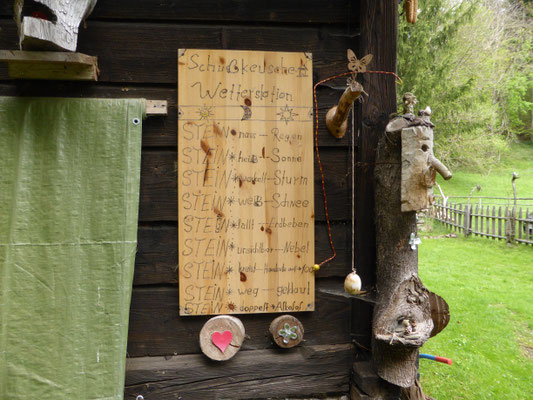 Wetterstation
STEIN * nass - Regen
STEIN * heiß - Sonne
STEIN * wackelt - Sturm
STEIN * weiß - Schnee
STEIN * fällt - Erdbeben
STEIN * unsichtbar - Nebel
STEIN
STEIN * weg - geklaut
STEIN * doppelt - Alkohol